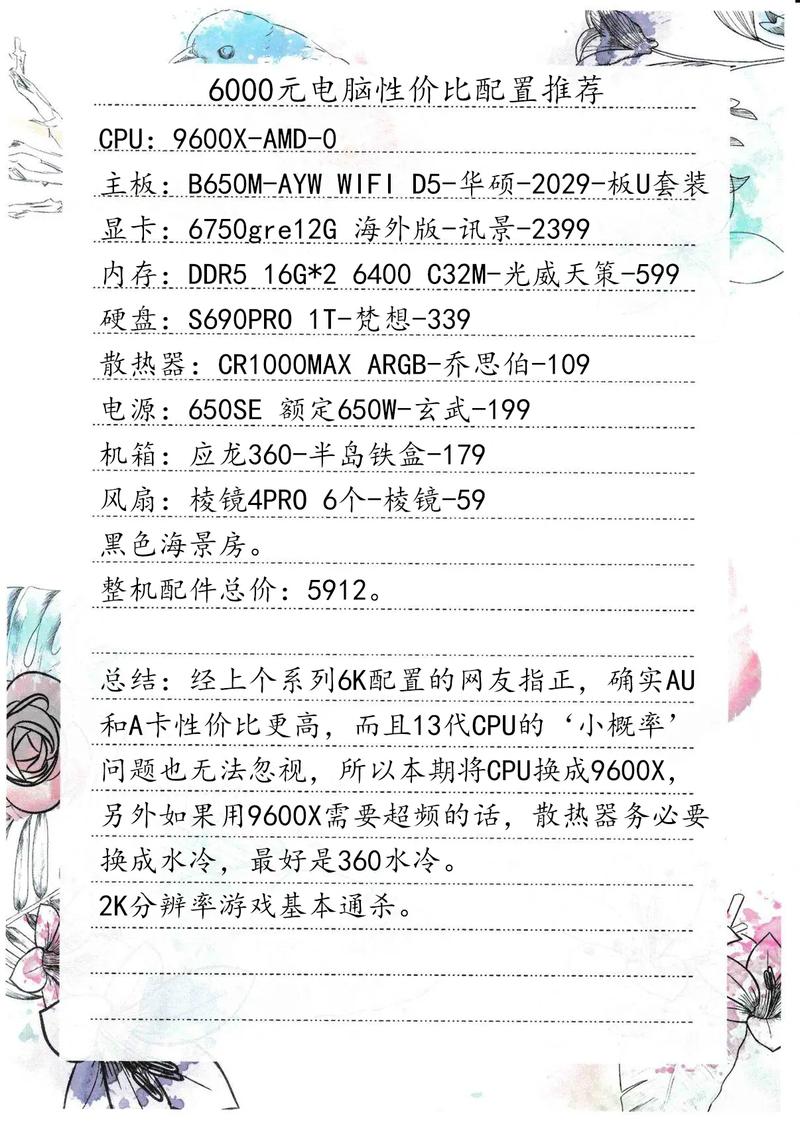 6000元电脑性价比配置推荐
CPU：9600X-AMD-0
主板：B650M-AYW WIFI D5-华硕-2029-板U套装
显卡：6750gre12G 海外版-讯景-2399
内存：DDR5 16G*2 6400 C32M-光威天策-599
硬盘：S690PRO 1T-梵想-339
散热器：CR1000MAX ARGB-乔思伯-109
电源：650SE 额定650W-玄武-199
机箱：应龙360-半岛铁盒-179
风扇：棱镜4PRO 6个-棱镜-59
黑色海景房。
整机配件总价：5912。
总结：经上个系列6K配置的网友指正，确实AU
和A卡性价比更高，而且13代CPU的‘小概率’
问题也无法忽视，所以本期将CPU换成9600X，
另外如果用9600X需要超频的话，散热器务必要
换成水冷，最好是360水冷。
2K分辨率游戏基本通杀。